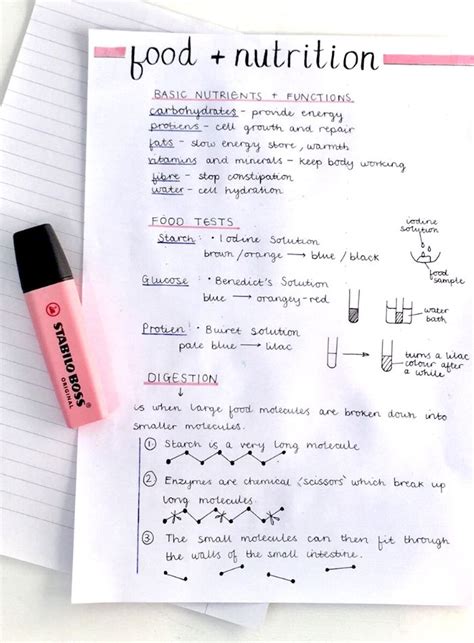 food + nutrition
BASIC NUTRIENTS + FUNCTIONS
carbohydrates - provide energy
protiens - cell growth and repair
fats - slow energy store, warmth
vitamins and minerals - keep body working
fibre - stop constipation
water - cell hydration
FOOD TESTS
Starch: • Iodine Solution
brown/orange → blue/black
iodine
solution
food
sample
Glucose: • Benedict's Solution
blue → orangey-red
water
bath
Protien: • Buiret Solution
pale blue → lilac
turns a lilac
colour after
a while
STABILO BOSS
ORIGINAL
DIGESTION
↓
is when large food molecules are broken down into
smaller molecules.
1 Starch is a very long molecule
2 Enzymes are chemical 'scissors' which break up
long molecules.
3 The small molecules can then fit through
the walls of the small intestine.